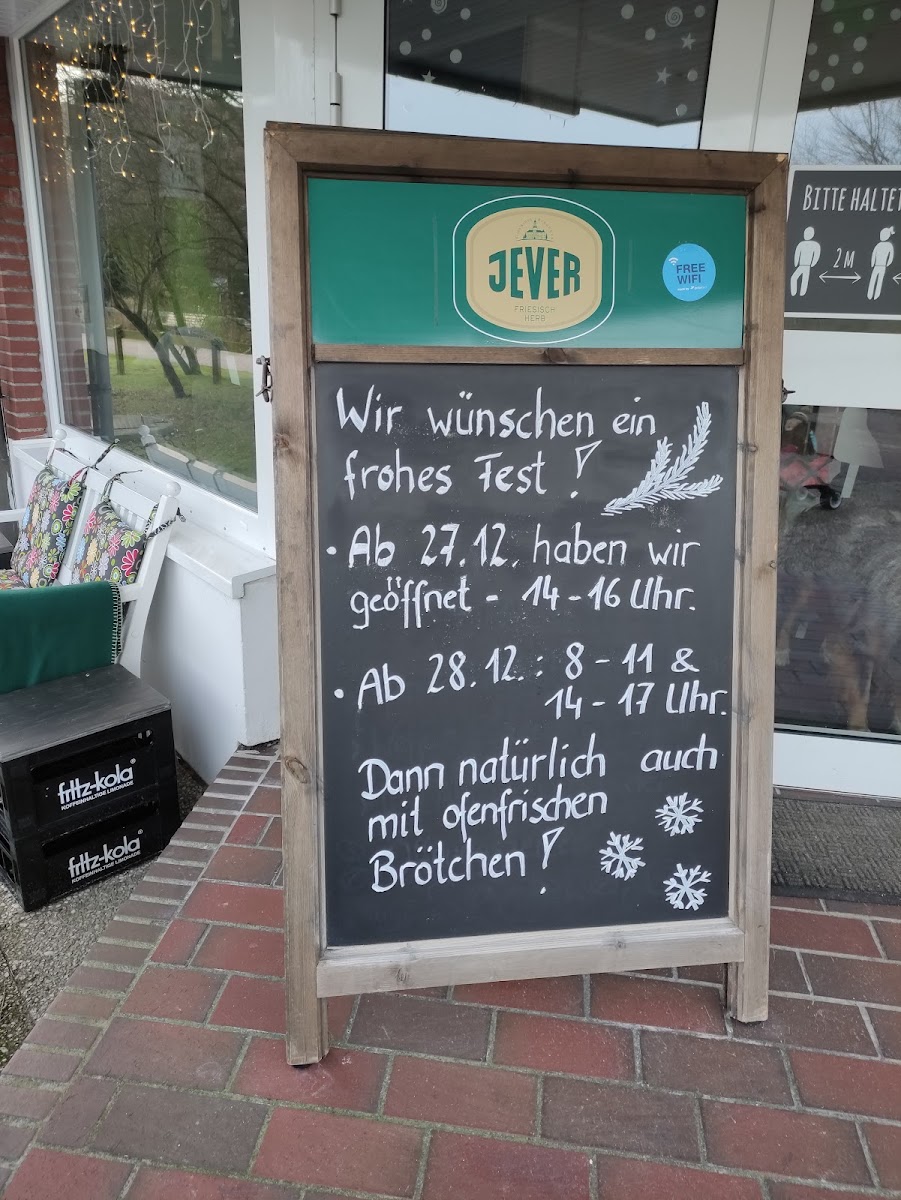 JEVER
FRIESISCH
HERB
FREE
WIFI
BITTE HALTE
2 M
Wir wünschen ein
frohes Fest!
• Ab 27.12. haben wir
geöffnet - 14 - 16 Uhr.
• Ab 28.12. : 8 - 11 &
14 - 17 Uhr.
Dann natürlich auch
mit ofenfrischen
Brötchen!
fritz-kola®
KOFFEINHALTIGE LIMONADE
fritz-kola®
KOFFEINHALTIGE LIMONADE